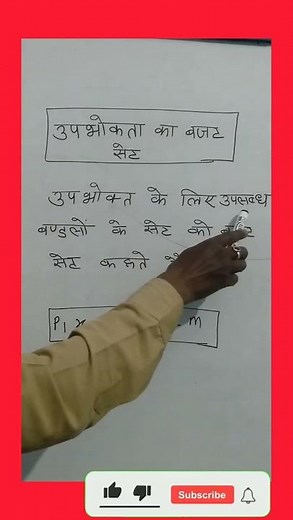 उपभोक्ता का बजट
सेट
उपभोक्त के लिए उपलब्ध
बण्डलों के सेट को
सेट कहते
P₁ m
Subscribe